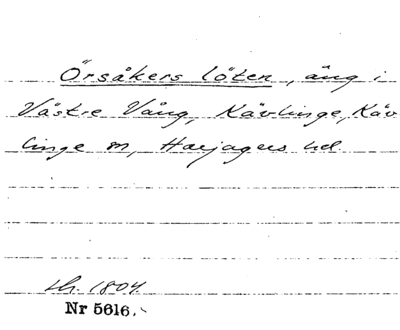 Örsåkers löten, äng i
Västre Vång, Kävlinge, Käv
linge sn, Harjagers hd.
1804.
Nr 5616.